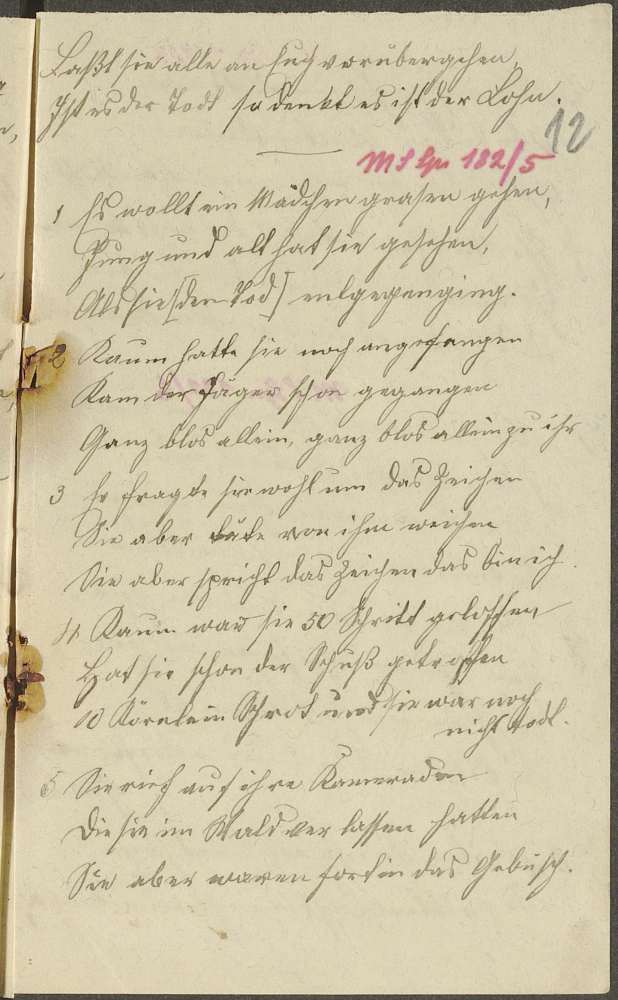 Laßt sie alle an Euch vorübergehen,
Ist es der Todt so denkt es ist der Lohn.
12
MS Gr. 182/5
1 Es wollt ein Mädchen grasen gehen,
Jung und alt hat sie gesehen,
Als sie [den Tod] entgegenging.
2 Kaum hatte sie noch angefangen
Kam der Jäger schon gegangen
Ganz blos allein, ganz blos allein zu ihr
3 Er fragte sie wohl um das Zeichen
Sie aber täte von ihm weichen
Sie aber spricht das Zeichen das bin ich.
4 Kaum war sie 50 Schritt geloffen
Hat sie schon der Schuß getroffen
10 Körnlein Schrot und sie war noch
nicht todt.
5 Sie rief auf ihre Kameraden
Die sie im Wald verlassen hatten
Sie aber waren fort in das Gebüsch.